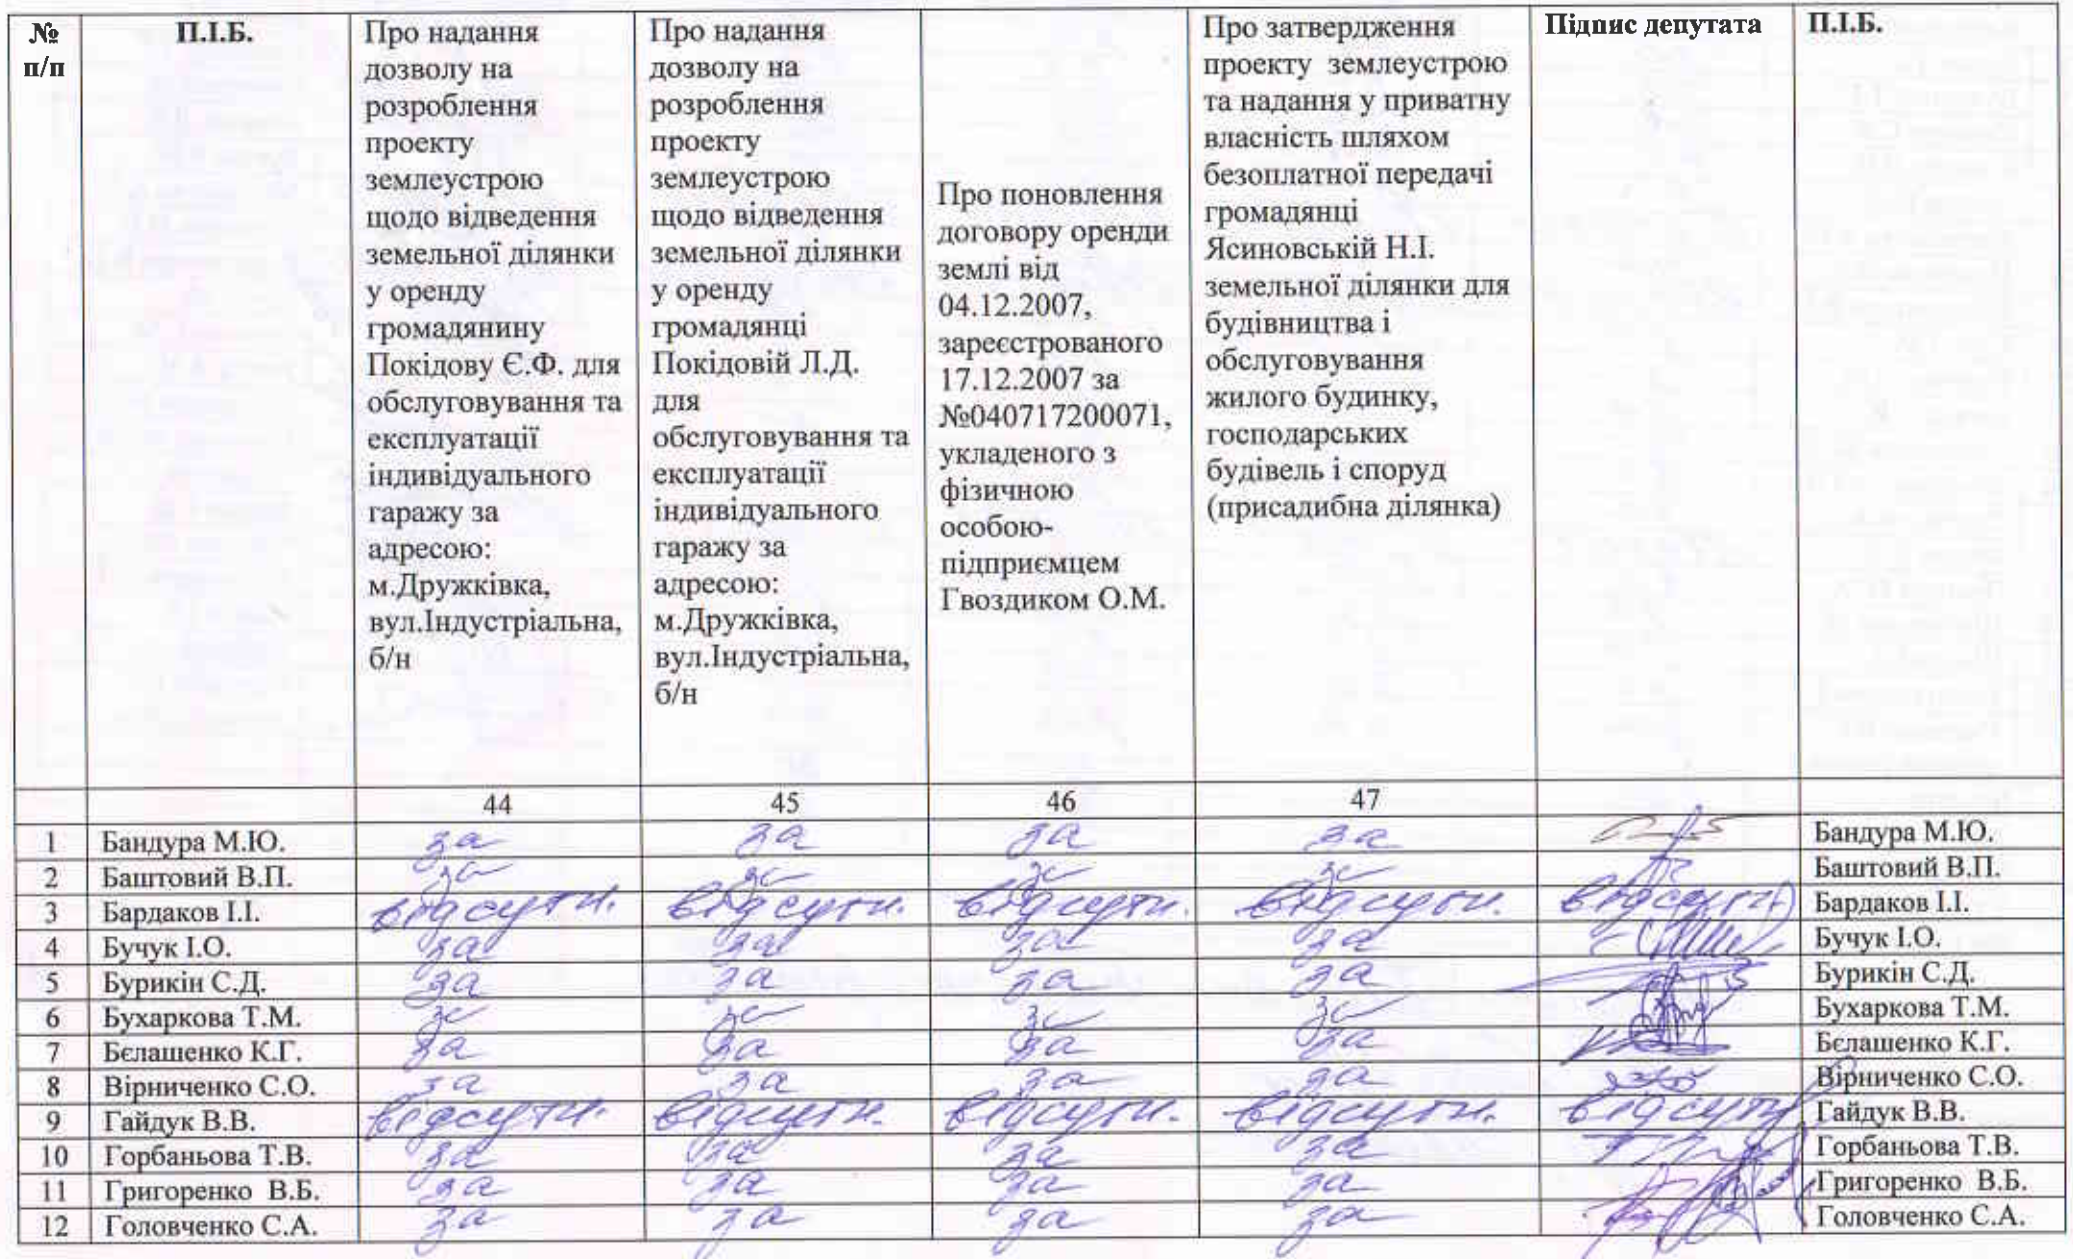 №
п/п
П.І.Б.
Про надання
дозволу на
розроблення
проекту
землеустрою
щодо відведення
земельної ділянки
у оренду
громадянину
Покідову Є.Ф. для
обслуговування та
експлуатації
індивідуального
гаражу за
адресою:
м.Дружківка,
вул.Індустріальна,
б/н
Про надання
дозволу на
розроблення
проекту
землеустрою
щодо відведення
земельної ділянки
у оренду
громадянці
Покідовій Л.Д.
для
обслуговування та
експлуатації
індивідуального
гаражу за
адресою:
м.Дружківка,
вул.Індустріальна,
б/н
Про поновлення
договору оренди
землі від
04.12.2007,
зареєстрованого
17.12.2007 за
№040717200071,
укладеного з
фізичною
особою-
підприємцем
Гвоздиком О.М.
Про затвердження
проекту землеустрою
та надання у приватну
власність шляхом
безоплатної передачі
громадянці
Ясиновській Н.І.
земельної ділянки для
будівництва і
обслуговування
жилого будинку,
господарських
будівель і споруд
(присадибна ділянка)
Підпис депутата
П.І.Б.
44 45 46 47
1 Бандура М.Ю. за за за за Бандура М.Ю.
2 Баштовий В.П. за за за за Баштовий В.П.
3 Бардаков І.І. відсутн. відсутн. відсутн. відсутн. відсутн Бардаков І.І.
4 Бучук І.О. за за за за Бучук І.О.
5 Бурикін С.Д. за за за за Бурикін С.Д.
6 Бухаркова Т.М. за за за за Бухаркова Т.М.
7 Бєлашенко К.Г. за за за за Бєлашенко К.Г.
8 Вірниченко С.О. за за за за Вірниченко С.О.
9 Гайдук В.В. відсутн. відсутн. відсутн. відсутн. відсутн Гайдук В.В.
10 Горбаньова Т.В. за за за за Горбаньова Т.В.
11 Григоренко В.Б. за за за за Григоренко В.Б.
12 Головченко С.А. за за за за Головченко С.А.